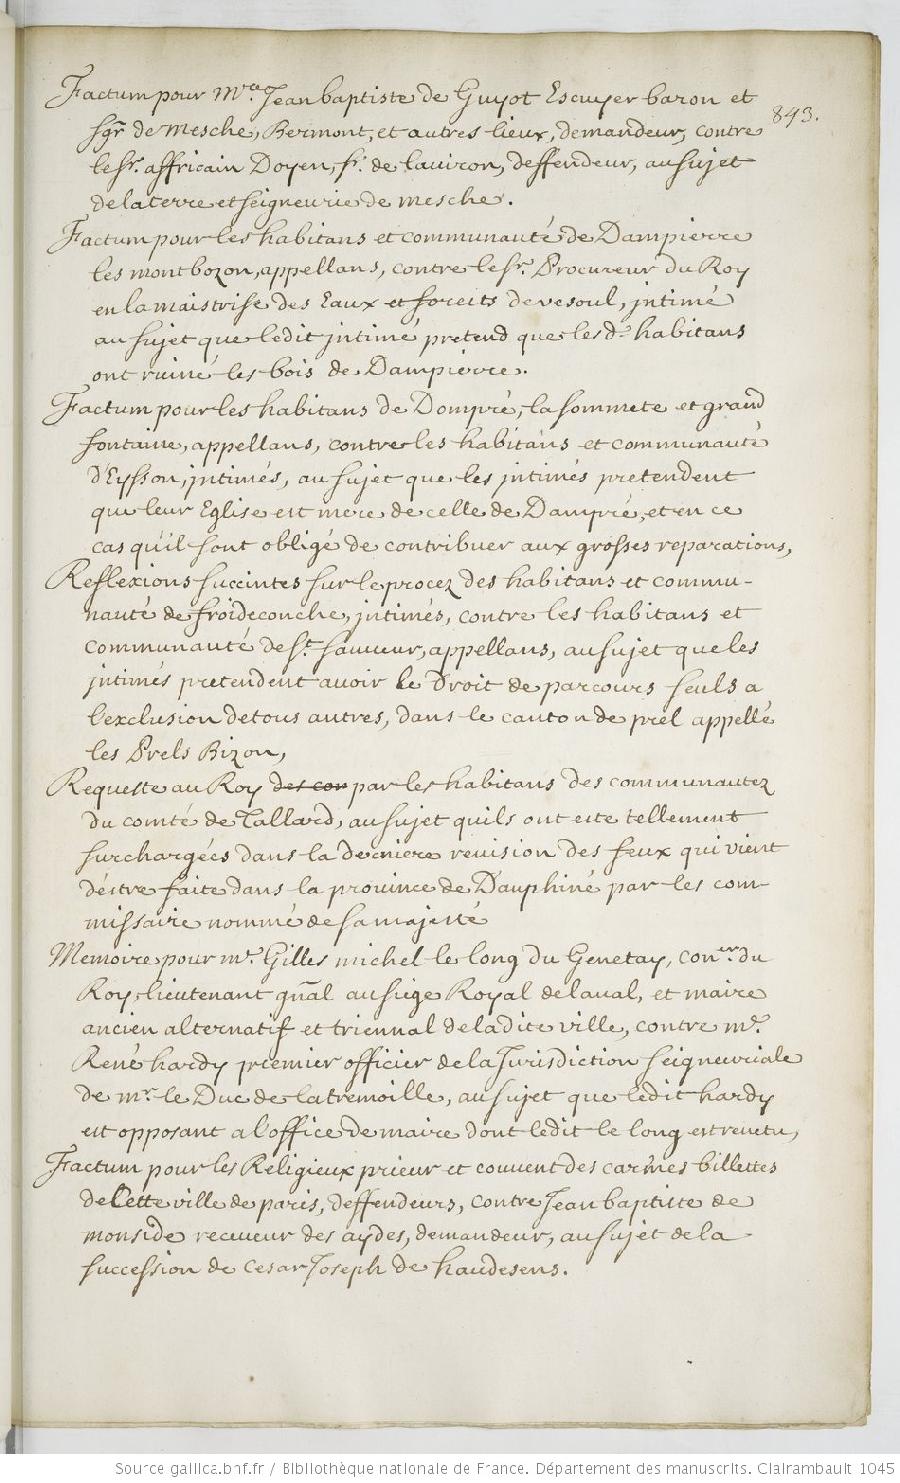 Factum pour Mre Jean baptiste de Guyot Escuyer baron et
843.
sgr de Mesche, Bermont, et autres lieux, demandeur, contre
le Sr. affricain Doyen, sr. de lauiron, deffendeur, au sujet
de la terre et seigneurie de Mesche.
Factum pour les habitans et communauté de Dampierre
les montbozon, appellans, contre le Sr. Procureur du Roy
en la maistrise des Eaux et forests de vesoul, jntimé
au sujet que ledit jntimé pretend que lesd. habitans
ont ruiné les bois de Dampierre.
Factum pour les habitans de Dompré, la sommete et grand
fontaine, appellans, contre les habitans et communauté
d'Eysson, jntimés, au sujet que les jntimés pretendent
que leur Eglise est mere de celle de Dampré, et en ce
cas qu'il sont obligé de contribuer aux grosses reparations,
Reflexions succintes sur le procez des habitans et commu-
nauté de froideconche, jntimés, contre les habitans et
communauté de St. sauueur, appellans, au sujet que les
jntimés pretendent auoir le droit de parcours seuls a
l'exclusion de tous autres, dans le canton de prel appellé
les Prels Bizon,
Requeste au Roy des con par les habitans des communautez
du comté de Tallard, au sujet quils ont esté tellement
surchargées dans la derniere reuision des feux qui vient
d'éstre faite dans la prouince de Dauphiné par les com-
missaire nommé de sa majesté
Memoire pour mr. Gilles michel le long du Genetay, coner. du
Roy, lieutenant gnal au siege Royal de laual, et maire
ancien alternatif et triennal de la dite ville, contre me.
René hardy premier officier de la Jurisdiction seigneuriale
de mr. le Duc de la tremoille, au sujet que ledit hardy
est opposant a l'office de maire dont ledit le long est reuetu,
Factum pour les Religieux prieur et couuent des carmes billettes
de Cette ville de paris, deffendeurs, contre Jean baptiste de
monside receueur des aydes, demandeur, au sujet de la
succession de Cesar Joseph de haudesens.
Source gallica.bnf.fr / Bibliothèque nationale de France. Département des manuscrits. Clairambault 1045